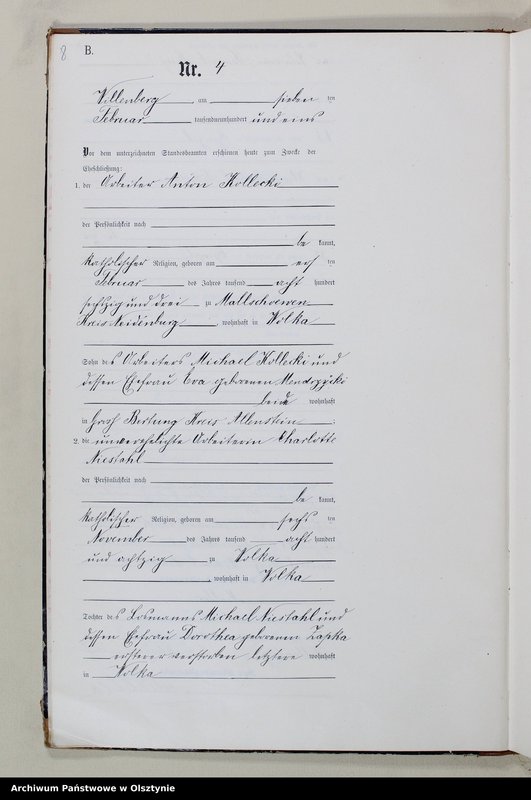 8
B.
Nr. 4
Willenberg am sieben ten
Februar tausendneunhundert und eins
Vor dem unterzeichneten Standesbeamten erschienen heute zum Zwecke der
Eheschließung:
1. der Arbeiter Anton Kollecki
der Persönlichkeit nach
be kannt,
katholischer Religion, geboren am ten
Februar des Jahres tausend acht hundert
sechszig und drei zu Mallschoewen
Kreis Neidenburg, wohnhaft in Wolka
Sohn des Arbeiters Michael Kollecki und
dessen Ehefrau Eva geborenen
beide wohnhaft
in Groß Bertung Kreis Allenstein;
2. die unverehelichte Arbeiterin Charlotte
Niestahl
der Persönlichkeit nach
be kannt,
katholischer Religion, geboren am sechs ten
November des Jahres tausend acht hundert
und achtzig zu Wolka
, wohnhaft in Wolka
Tochter des Losmanns Michael Niestahl und
dessen Ehefrau Dorothea geborenen Zapka
ersterer verstorben letztere wohnhaft
in Wolka
Archiwum Państwowe w Olsztynie